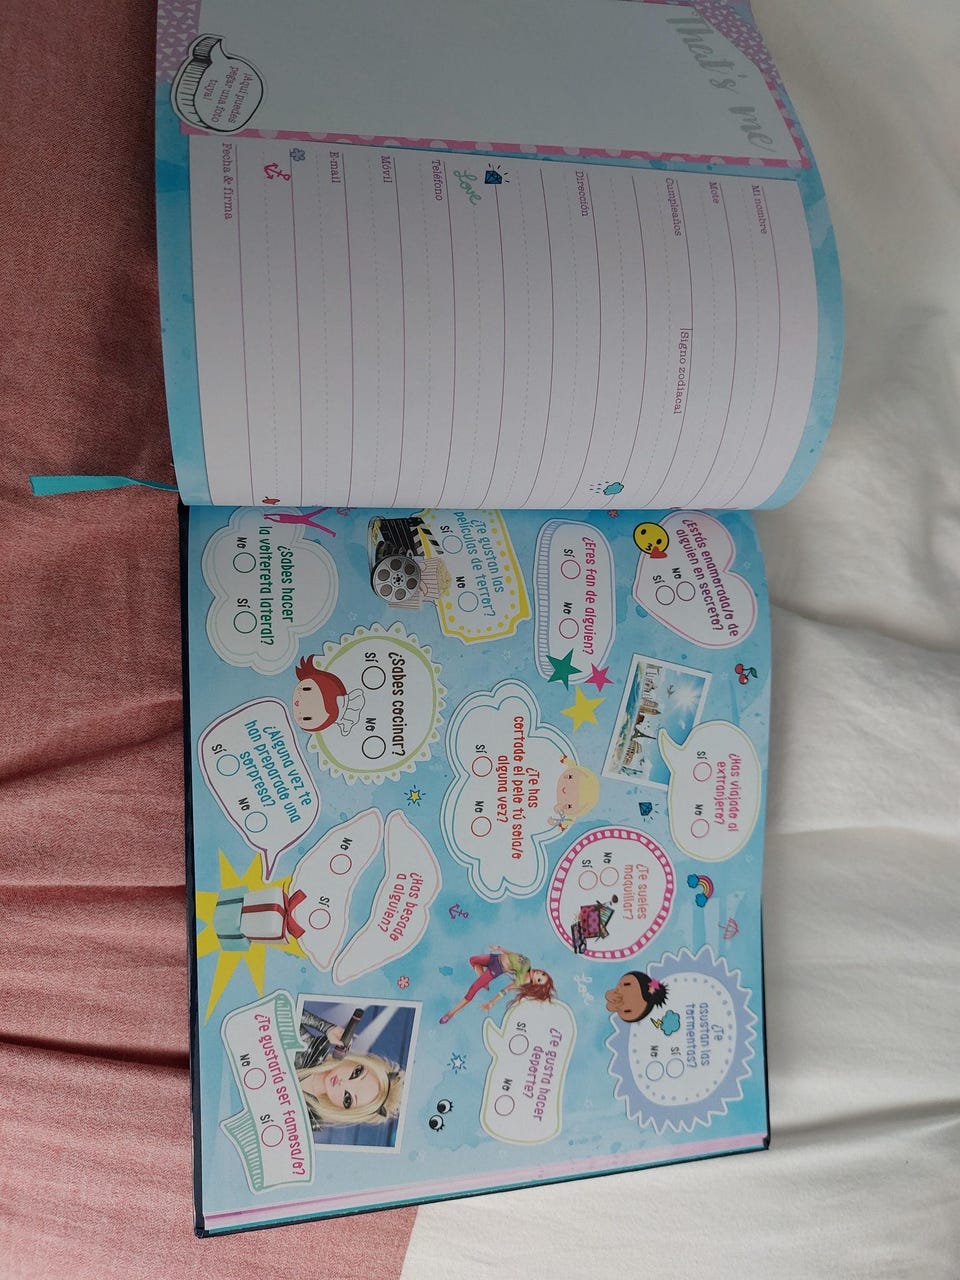 That's me
¡Aquí puedes
pegar una foto
tuya!
Mi nombre
Mote
Cumpleaños
Signo zodiacal
Dirección
Love
Teléfono
Móvil
E-mail
Fecha & firma
¿Estás enamorada/o de
alguien en secreto?
No
Sí
¿Has viajado al
extranjero?
Sí
No
¿Te
asustan las
tormentas?
Sí
No
¿Eres fan de alguien?
Sí
No
¿Te sueles
maquillar?
No
Sí
Love
¿Te gustan las
películas de terror?
Sí
No
¿Te has
cortado el pelo tú sola/o
alguna vez?
Sí
No
¿Te gusta hacer
deporte?
Sí
No
¿Sabes cocinar?
Sí
No
¿Has besado
a alguien?
No
Sí
¿Sabes hacer
la voltereta lateral?
No
Sí
¿Alguna vez te
han preparado una
sorpresa?
Sí
No
¿Te gustaría ser famosa/o?
No
Sí